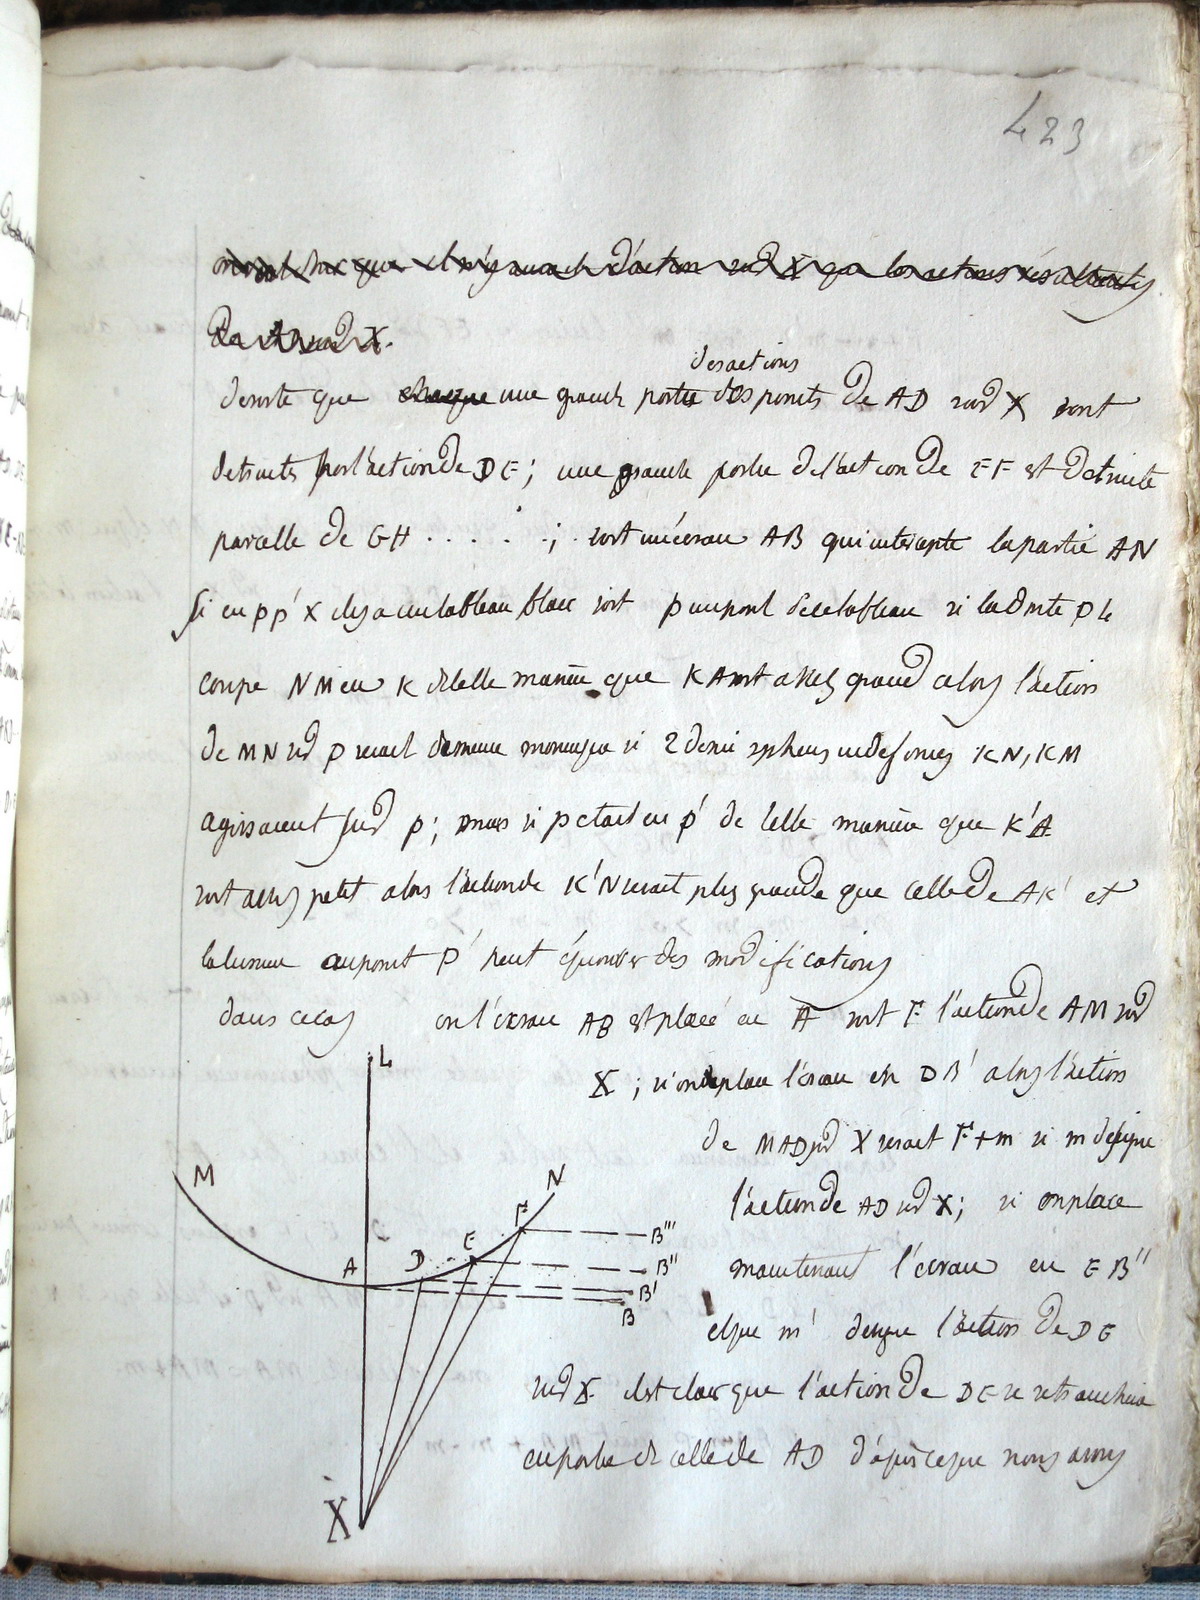 423
on voit que il n'y aura d'action sur X que les actions résultantes
De AD sur X.
des actions
desorte que chaque une grande partie des points de AD sur X sont
detruits par l'action de DE ; une grande partie de l'action de EF est detruite
parcelle de GH . . . . . ; soit un écran AB qui intercepte la partie AN
Si en pp'X il y a un tableau blanc soit p un point de ce tableau si la droite PL
coupe NM en K de telle manière que KA soit assez grand alors l'action
de MN sur p serait de meme que si 2 demi spheres indefinies KN, KM
agissaient sur p ; mais si p etait en p' de telle manière que K'A
soit assez petit alors l'action de K'N serait plus grande que celle de AK' et
la lumiere au point P' peut éprouver des modifications
dans ce cas ou l'écran AB est placé en A soit F l'action de AM sur
X ; si on deplace l'écran en DB' alors l'action
de MAD sur X serait F+m si m designe
l'action de AD sur X ; si on place
maintenant l'écran en EB''
et que m' designe l'action de DE
sur X il est clair que l'action de DE se retranchera
en partie de celle de AD d'après ce que nous avons
L
M
N
F
E
D
A
B'''
B''
B'
B
X